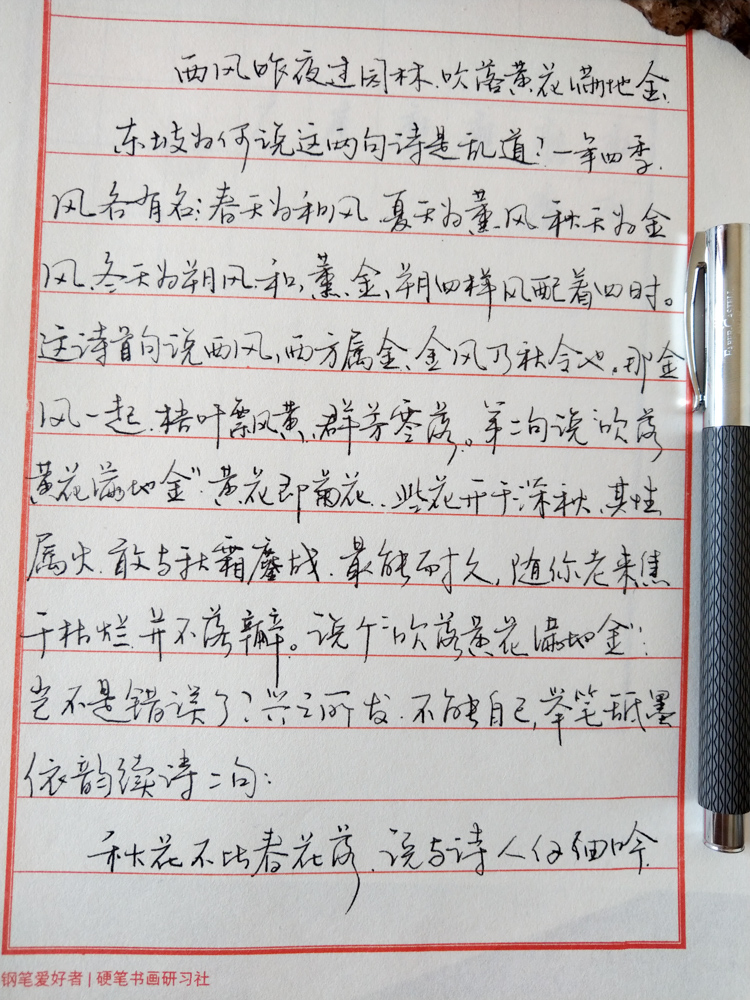 西风昨夜过园林、吹落黄花满地金、
东坡为何说这两句诗是乱道？一年四季、
风各有名：春天为和风、夏天为薰风、秋天为金
风、冬天为朔风、和、薰、金、朔四样风配着四时。
这诗首句说西风，西方属金、金风乃秋令也。那金
风一起、梧叶飘黄、群芳零落。第二句说“吹落
黄花满地金”黄花即菊花、此花开于深秋、其性
属火、敢与秋霜鏖战、最能耐久，随你老来焦
干枯烂、并不落瓣。说个“吹落黄花满地金”：
岂不是错误了？兴之所发、不能自已，举笔舐墨
依韵续诗二句：
秋花不比春花落、说与诗人仔细吟、
钢笔爱好者 | 硬笔书画研习社